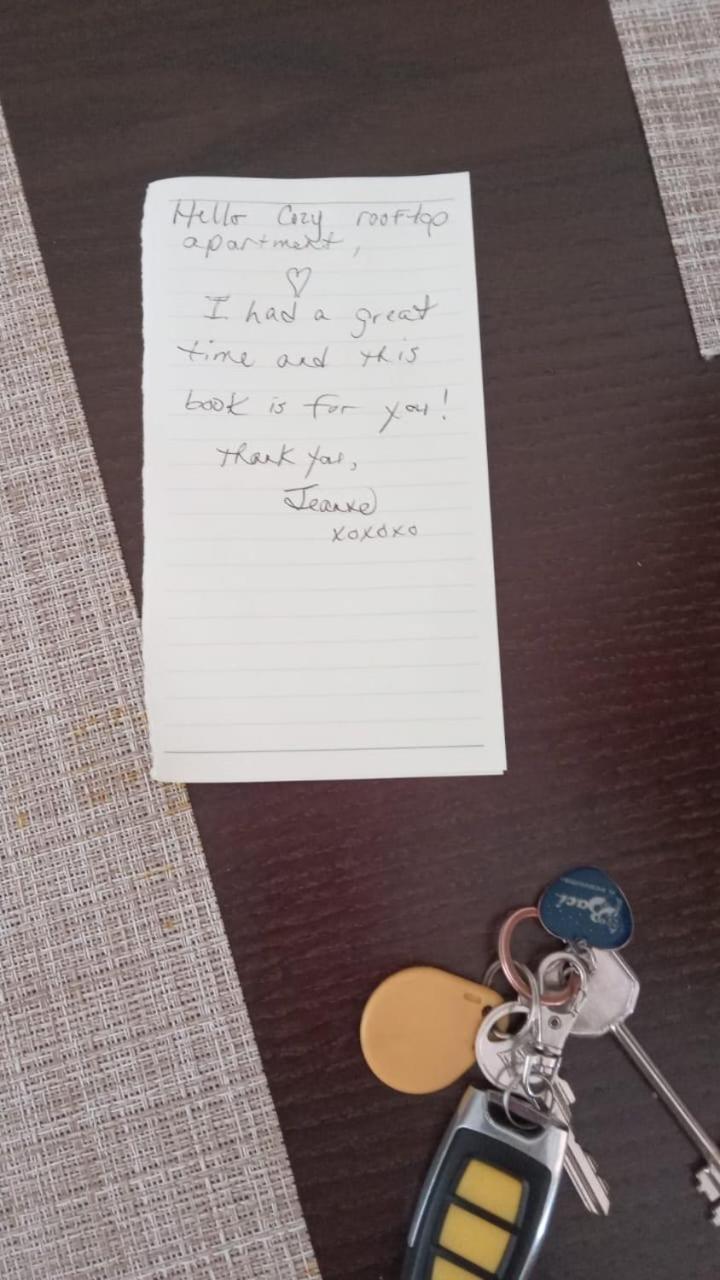 Hello Cozy rooftop
apartment,
♡
I had a great
time and this
book is for you!
Thank you,
Jeanne
xoxoxo
Baci